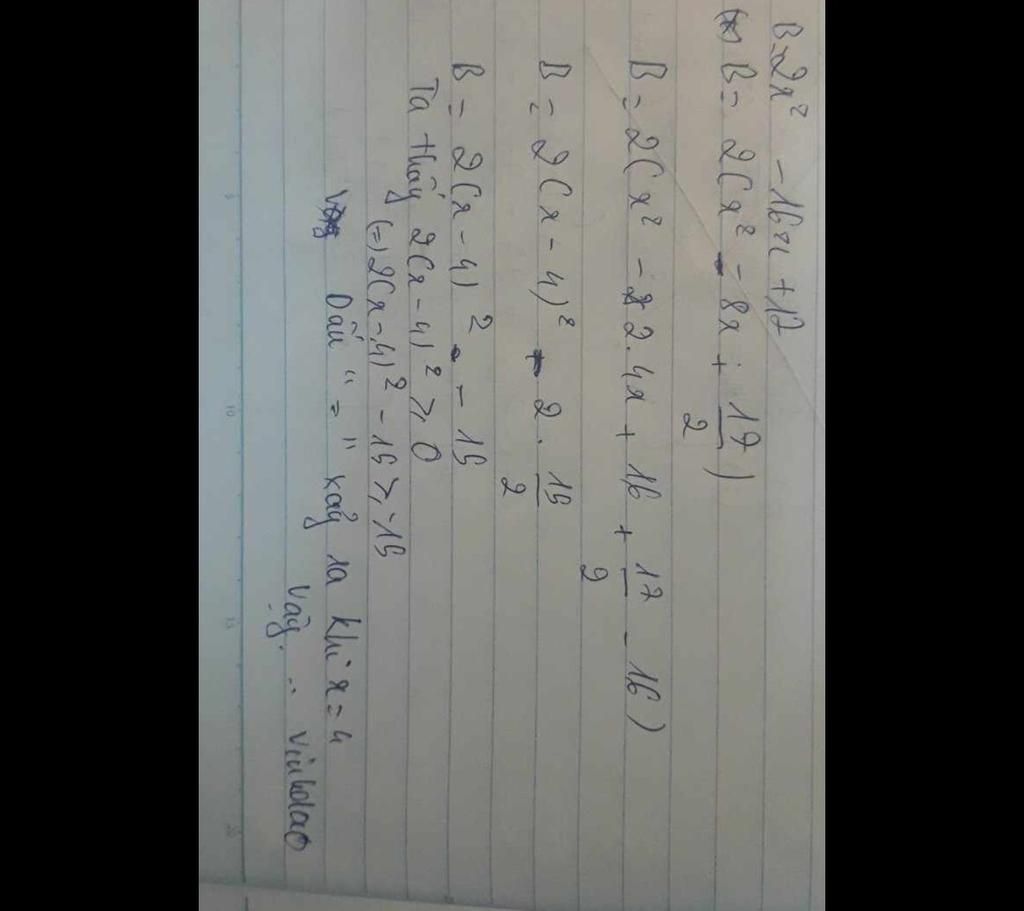 B = 2x² - 16x + 17
(*) B = 2(x² - 8x + 17/2)
B = 2(x² - 2.4x + 16 + 17/2 - 16)
B = 2(x - 4)² - 2. 15/2
B = 2(x - 4)² - 15
Ta thấy 2(x - 4)² ⩾ 0
(=) 2(x - 4)² - 15 ⩾ -15
Dấu " = " xảy ra khi x = 4
Vậy ..